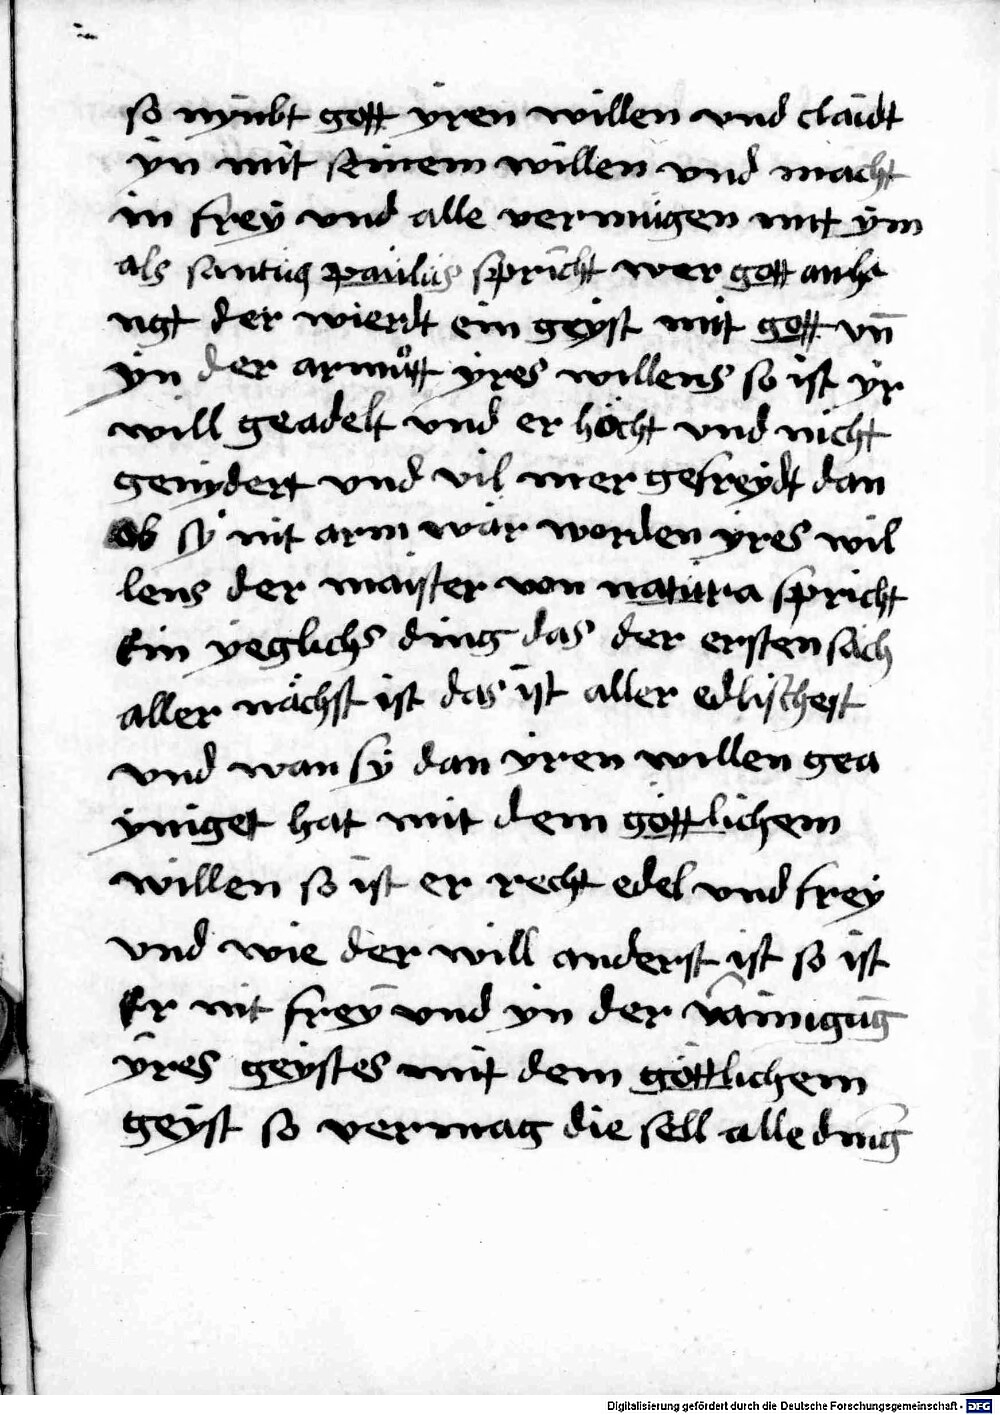 so nymbt gott yren willen vnd claidt
yn mit seinem willen vnd macht
in frey vnd alle vermugen mit ym
als santus paulus spricht wer gott anhe
ngt der wierdt ein geyst mit gott vn̄
yn der armůtt yres willens so ist yr
will geadelt vnd er höcht vnd nicht
genydert vnd vil mer gefreydt dan
ob sy nit arm wår worden yres wil
lens der maister von natura spricht
Ein yeglichs ding das der ersten sach
aller nächst ist das ist aller edlischest
vnd wan sy dan yren willen gea
yniget hat mit dem göttlichem
willen so ist er recht edel vnd frey
vnd wie der will anderst ist so ist
Er nit frey vnd yn der vainigūg
yres geystes mit dem göttlichem
geyst so vermag die sell alle ding
Digitalisierung gefördert durch die Deutsche Forschungsgemeinschaft - DFG